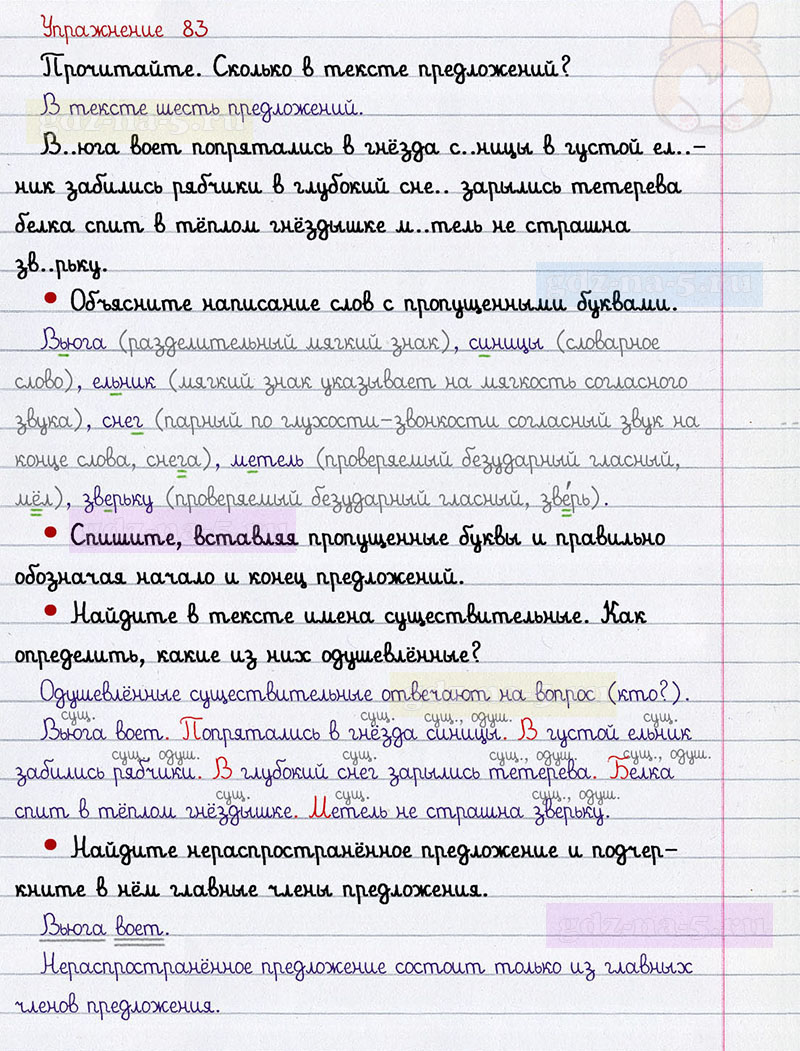 Упражнение 83
Прочитайте. Сколько в тексте предложений?
В тексте шесть предложений.
gdz-na-5.ru
В..юга воет попрятались в гнёзда с..ницы в густой ел..-
ник забились рябчики в глубокий сне.. зарылись тетерева
белка спит в тёплом гнёздышке м..тель не страшна
зв..рьку.
gdz-na-5.ru
• Объясните написание слов с пропущенными буквами.
Вьюга (разделительный мягкий знак), синицы (словарное
слово), ельник (мягкий знак указывает на мягкость согласного
звука), снег (парный по глухости-звонкости согласный звук на
конце слова, снега), метель (проверяемый безударный гласный,
мёл), зверьку (проверяемый безударный гласный, зве́рь).
gdz-na-5.ru
• Спишите, вставляя пропущенные буквы и правильно
обозначая начало и конец предложений.
• Найдите в тексте имена существительные. Как
определить, какие из них одушевлённые?
Одушевлённые существительные отвечают на вопрос (кто?).
gdz-na-5.ru
сущ. сущ. сущ., одуш. сущ.
Вьюга воет. Попрятались в гнёзда синицы. В густой ельник
сущ., одуш. сущ. сущ., одуш. сущ., одуш.
забились рябчики. В глубокий снег зарылись тетерева. Белка
сущ. сущ. сущ., одуш.
спит в тёплом гнёздышке. Метель не страшна зверьку.
• Найдите нераспространённое предложение и подчер-
кните в нём главные члены предложения.
Вьюга воет.
gdz-na-5.ru
Нераспространённое предложение состоит только из главных
членов предложения.